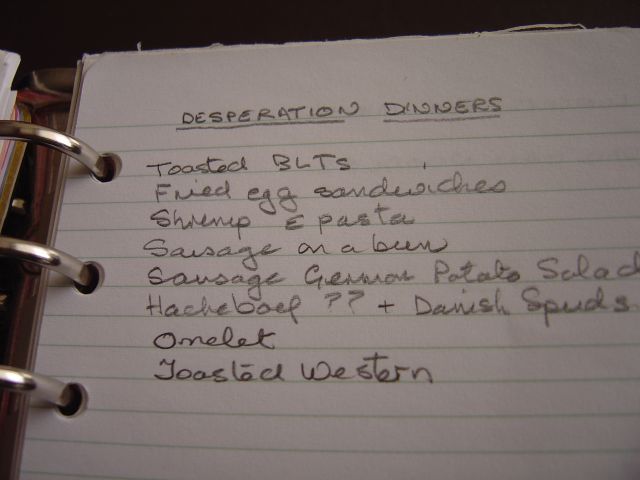 DESPERATION DINNERS
Toasted BLTS
Fried egg sandwiches
Shrimp & pasta
Sausage on a bun
Sausage German Potato Salad
Hacheboef ?? + Danish Spuds
Omelet
Toasted Western